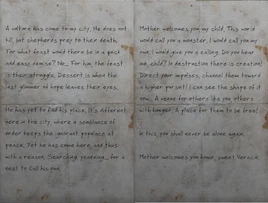 A vulture has come to my city. He does not
kill, but shepherds prey to their death.
For what feast would there be in a quick
and easy demise? No... For him, the feast
is their struggle. Dessert is when the
last glimmer of hope leaves their eyes.
He has yet to find his place. It's different
here in the city, where a semblance of
order keeps the ignorant populace at
peace. Yet he has come here, and thus
with a reason. Searching, yearning... for a
nest to call his own.
Mother welcomes you, my child. This world
would call you a monster. I would call you
my own. I would give you a calling. Do you hear
me, child? In destruction there is creation!
Direct your impulses, channel them toward
a higher purpose! I can see the shape of it
now. A venue for others like you, others
with hunger. A place for them to be free!
In this, you shall never be alone again.
Mother welcomes you home, sweet